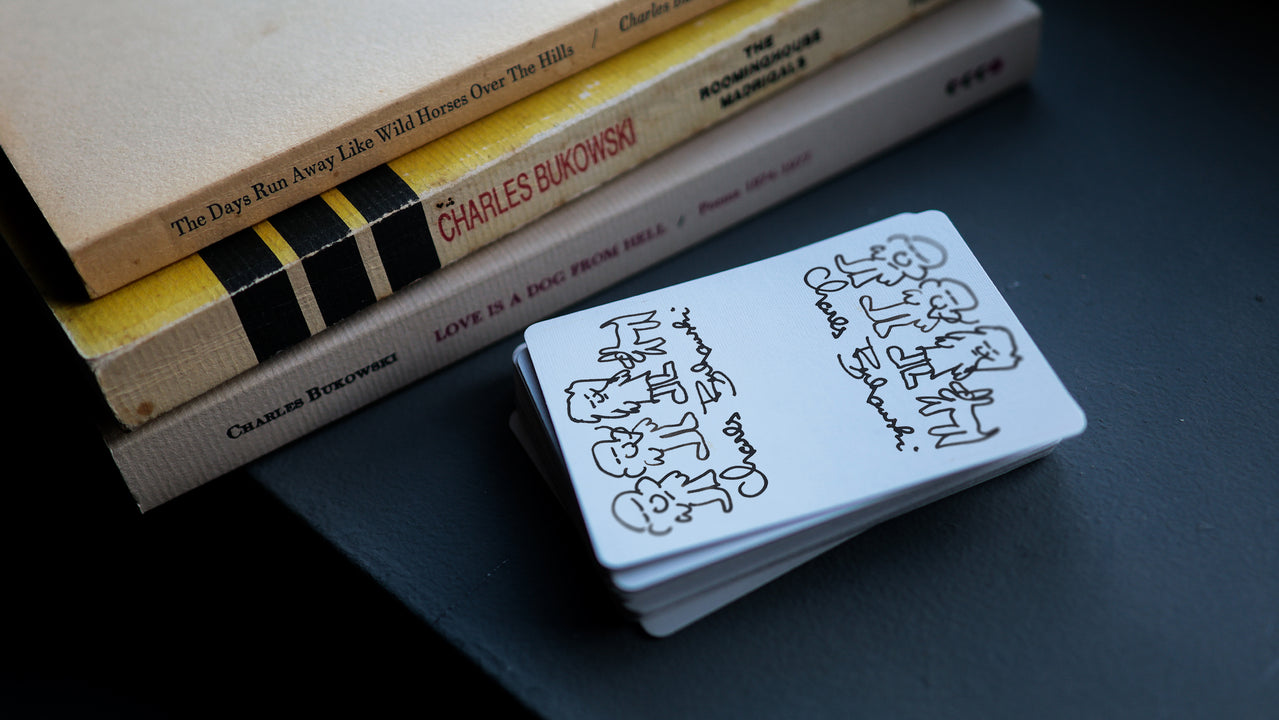 The Days Run Away Like Wild Horses Over The Hills / Charles
CHARLES BUKOWSKI
THE
ROOMINGHOUSE
MADRIGALS
CHARLES BUKOWSKI
LOVE IS A DOG FROM HELL / Poems 1974-1977
Charles Bukowski
Charles Bukowski